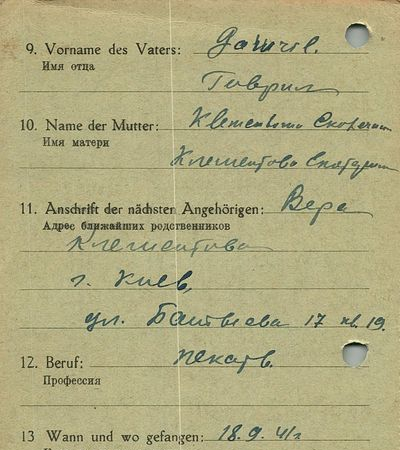 9. Vorname des Vaters:
Имя отца
Гаврил
10. Name der Mutter:
Имя матери
Клементова
11. Anschrift der nächsten Angehörigen: Вера
Адрес ближайших родственников
Клементова
г. Киев,
ул. 17 кв. 19.
12. Beruf: пекарь.
Профессия
13 Wann und wo gefangen: 18.9.41г